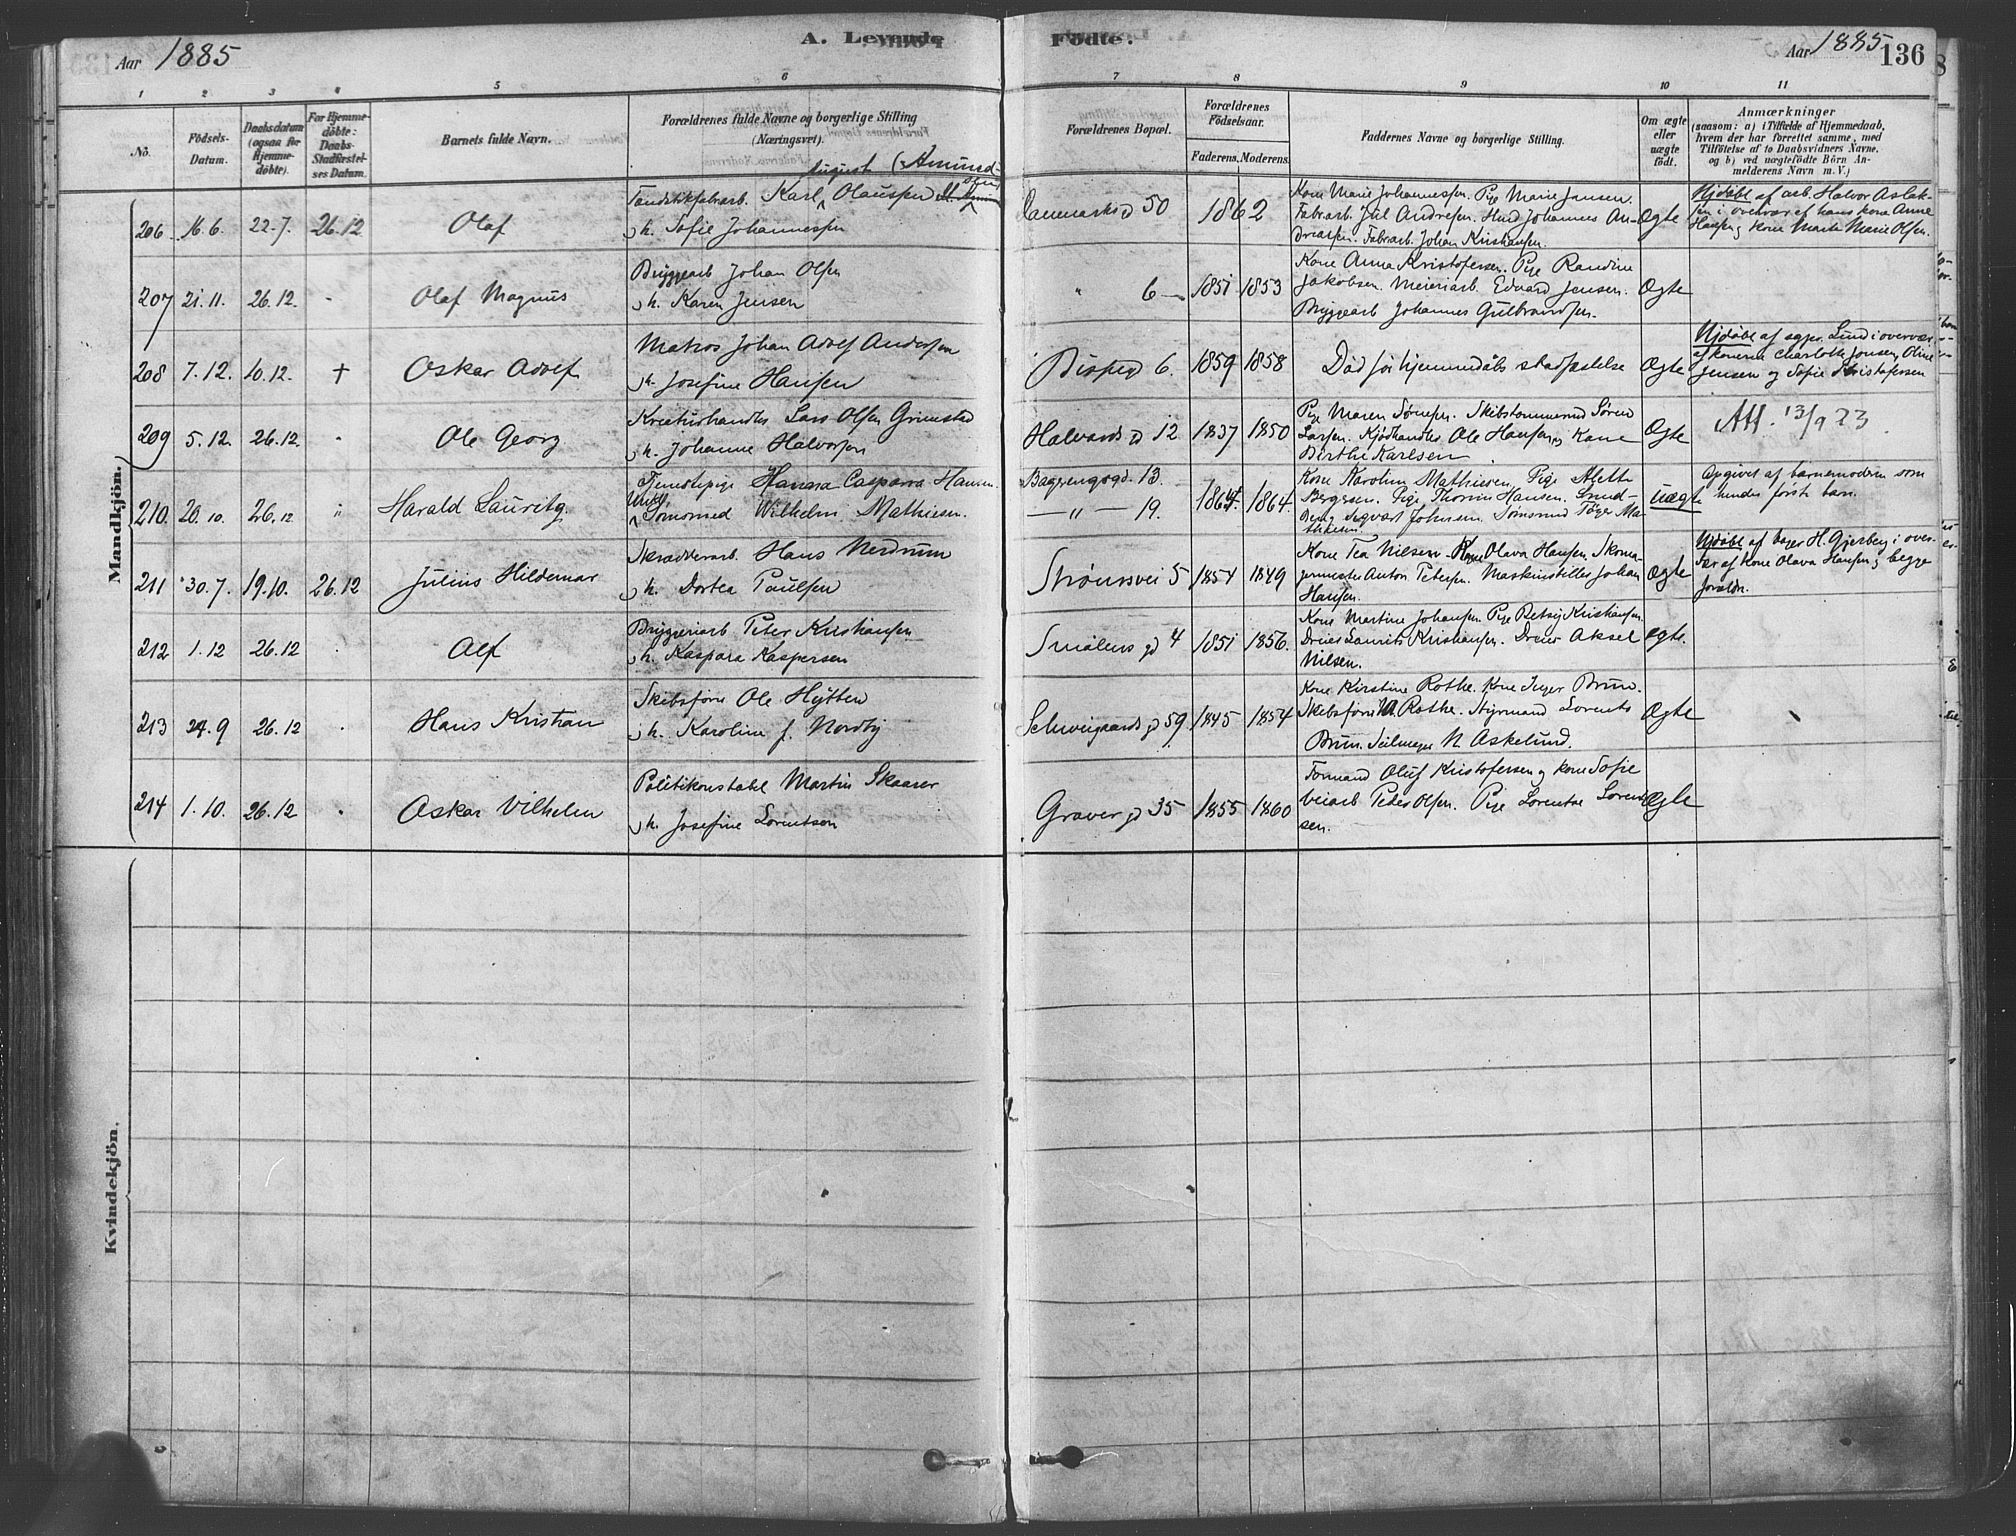 Aar 1885
A. Levende Födte.
Aar 1885 136
1 2 3 4 5 6 7 8 9 10 11
No.
Födsels-
Datum.
Daabsdatum
(ogsaa for
Hjemme-
döbte).
For Hjemme-
döbte:
Daabs-
Stadfæstel-
ses Datum.
Barnets fulde Navn.
Forældrenes fulde Navne og borgerlige Stilling
(Næringsvei).
Forældrenes Bopæl.
Forældrenes
Födselsaar.
Faderens. Moderens.
Faddernes Navne og borgerlige Stilling.
Om ægte
eller
uægte
födt.
Anmærkninger
(saasom: a) i Tilfælde af Hjemmedaab,
hvem der har forrettet samme, med
Tilföielse af to Daabsvidners Navne,
og b) ved uægtefödte Börn An-
melderens Navn m. V.)
Mandkjön.
206 16.6. 22.7. 26.12 Olaf
August (Amunds-
Karl Olaussen
h. Sofie Johannessen
50 1862
Kone Marie Johannessen. Pige Marie Jansen.
Fabrarb. Andresen. Johannes An-
dreasen. Fabrarb. Johan Kristiansen.
Ægte
Hjdøbt af arb. Halvor Aslak-
sen i overvær af hans kone Anne
Hansen og kone Marte Marie Olsen.
207 21.11. 26.12. - Olaf Magnus
Bryggearb Johan Olsen
h. Karen Jensen
" 6 - 1851 1853
Kone Anna Kristofersen. Pige Randine
Jakobsen. Meieriarb. Edvard Jensen.
Bryggearb Johannes Gulbrandsen.
Ægte
208 7.12. 10.12. † Oskar Adolf
Matros Johan Adolf Andersen
h. Josefine Hansen
Bispegd 6. 1859 1858
Død før hjemmedåbs stadfæstelse
Ægte
Hjdøbt af Lund i overvær
af konerne Charlotte Jonsen, Oline
Jensen og Sofie Kristofersen
209 5.12. 26.12. Ole Georg
Kreaturhandler Lars Olsen Grimstad
h. Johanne Halvorsen
Halvards gd 12 1837 1850
Pige Maren Sørensen. Skibstømmermd Søren
Larsen. Kjødhandler Ole Hansen og Kone
Berthe Karlsen
Ægte
Att. 13/9 23.
210. 20.10. 26.12 " Harald Lauritz.
Tjenestepige Hanna Casparra Hansen.
Ungk. Sømand Wilhelm Mathiesen.
13.
— " — 19. 1864. 1864.
Kone Karoline Mathiesen. Pige Alette
Bergesen. Pige Thorine Hansen.
Sigvart Johnsen. Sømand
Mathiesen
Uægte
Opgivet af barnemoderen som
hendes første barn.
211 30.7. 19.10. 26.12 Julius Hildemar
Skrædderarb. Hans Nerdrum
h. Dortea Paulsen
Strømsvei 5 1854 1849
Kone Tea Nilsen - Kone Olava Hansen Skoma-
germester Anton Petersen. Maskinstiller Johan
Hansen.
Ægte
Hjdøbt af bager H. Gjerberg i over-
vær af Kone Olava Hansen og begge
foreldr.
212 1.12 26.12 Alf
Bryggeriarb Peter Kristiansen
h. Kaspara Kaspersen
Smålens gd 4 1851 1856.
Kone Martine Johansen Pige Betsy Kristiansen.
Dreier Laurits Kristiansen. Dreier Aksel
Nilsen.
Ægte.
213 24.9 26.12 Hans Kristian
Skibsfører Ole Hytten
h. Karoline f. Nordby
Schweigaards gd 59 1845 1854
Kone Kirstine Rothe. Kone Inger Brun.
Skibsfører Rothe. Styrmand Lorents
Brun. Seilmager N. Askelund.
Ægte
214 1.10. 26.12 Oskar Vilhelm
Politikonstabel Martin Skaarer
h. Josefine Lorentsen
Graver gd 35 1855 1860
Formand Oluf Kristofersen og kone Sofie
Veiarb Peder Olsen. Pige Lorentse Lorent-
sen.
Ægte
Kvindekjön.